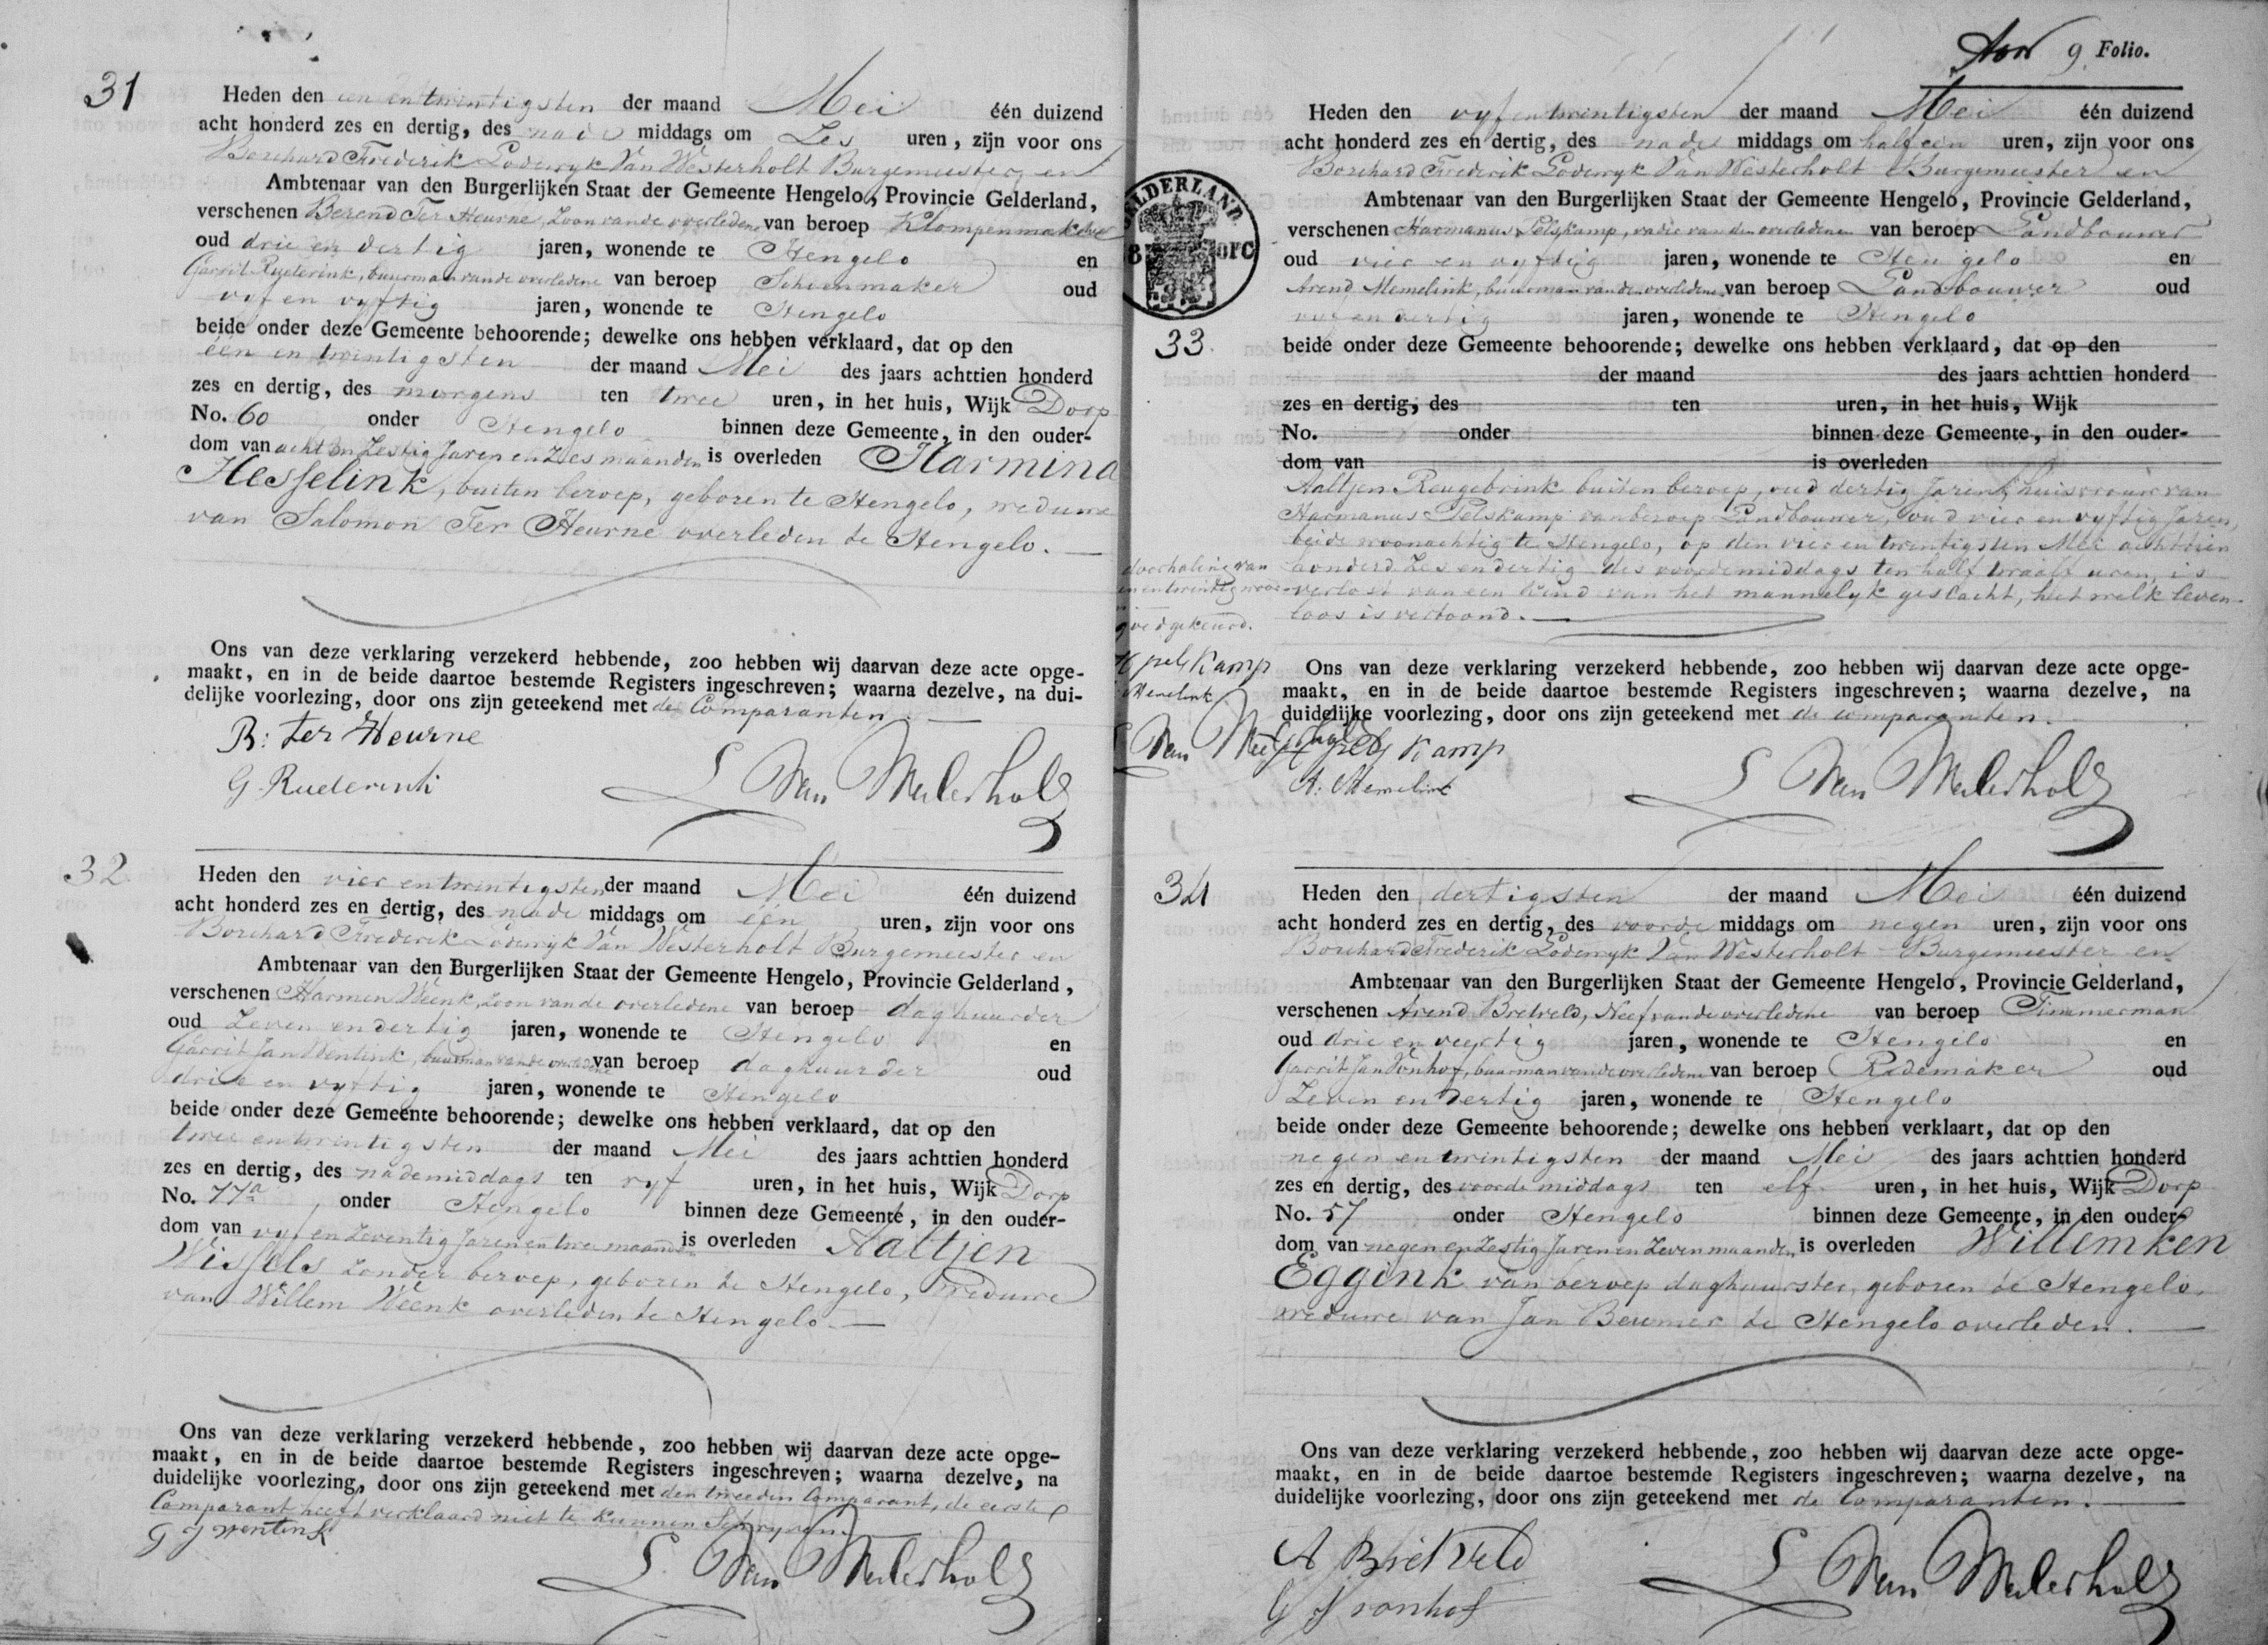 31
Heden den een en twintigsten der maand Mei één duizend
acht honderd zes en dertig, des nade middags om Zes uren, zijn voor ons
Borchard Frederik Lodewyk Van Westerholt Burgemeester en
Ambtenaar van den Burgerlijken Staat der Gemeente Hengelo, Provincie Gelderland,
verschenen Berend Ter Heurne, Zoon van de overledene van beroep Klompenmaker
oud drie en dertig jaren, wonende te Hengelo en
Garrit Rueterink, buurman van de overledene van beroep Schoenmaker oud
vyf en vyftig jaren, wonende te Hengelo
beide onder deze Gemeente behoorende; dewelke ons hebben verklaard, dat op den
één en twintigsten der maand Mei des jaars achttien honderd
zes en dertig, des morgens ten twee uren, in het huis, Wijk Dorp
No. 60 onder Hengelo binnen deze Gemeente, in den ouder-
dom van acht en Zestig Jaren en Zes maanden is overleden Harmina
Hesselink, buiten beroep, geboren te Hengelo, weduwe
van Salomon Ter Heurne overleden te Hengelo.
Ons van deze verklaring verzekerd hebbende, zoo hebben wij daarvan deze acte opge-
maakt, en in de beide daartoe bestemde Registers ingeschreven; waarna dezelve, na dui-
delijke voorlezing, door ons zijn geteekend met de Comparanten
B: ter Heurne
G. Ruederink
L Van Westerholt
32
Heden den vier en twintigsten der maand Mei één duizend
acht honderd zes en dertig, des nade middags om één uren, zijn voor ons
Borchard Frederik Lodewyk Van Westerholt Burgemeester en
Ambtenaar van den Burgerlijken Staat der Gemeente Hengelo, Provincie Gelderland,
verschenen Harmen Weenk, Zoon van de overledene van beroep daghuurder
oud Zeven en dertig jaren, wonende te Hengelo en
Garrit Jan Wentink, buurman van de overledene van beroep daghuurder oud
drie en vyftig jaren, wonende te Hengelo
beide onder deze Gemeente behoorende; dewelke ons hebben verklaard, dat op den
twee en twintigsten der maand Mei des jaars achttien honderd
zes en dertig, des nademiddags ten vyf uren, in het huis, Wijk Dorp
No. 77a onder Hengelo binnen deze Gemeente, in den ouder-
dom van vyf en Zeventig Jaren en twee maanden is overleden Aaltjen
Wissels Zonder beroep, geboren te Hengelo, Weduwe
van Willem Weenk overleden te Hengelo.
Ons van deze verklaring verzekerd hebbende, zoo hebben wij daarvan deze acte opge-
maakt, en in de beide daartoe bestemde Registers ingeschreven; waarna dezelve, na
duidelijke voorlezing, door ons zijn geteekend met den tweeden Comparant, de eerste
Comparant heeft verklaard niet te kunnen Schryven.
G J wentink
L. Van Westerholt
9 Folio.
Heden den vyf en twintigsten der maand Mei één duizend
acht honderd zes en dertig, des nade middags om half een uren, zijn voor ons
Borchard Frederik Lodewyk Van Westerholt Burgemeester en
Ambtenaar van den Burgerlijken Staat der Gemeente Hengelo, Provincie Gelderland,
verschenen Harmanus Pelskamp, vader van den overledenen van beroep Landbouwer
oud vier en vyftig jaren, wonende te Hengelo en
Arend Memelink, buurman van den overledene van beroep Landbouwer oud
vyf en dertig jaren, wonende te Hengelo
33.
beide onder deze Gemeente behoorende; dewelke ons hebben verklaard, dat op den
der maand des jaars achttien honderd
zes en dertig, des ten uren, in het huis, Wijk
No. onder binnen deze Gemeente, in den ouder-
dom van is overleden
Aaltjen Reugebrink buiten beroep, oud dertig Jaren, huisvrouw van
Harmanus Pelskamp van beroep Landbouwer, oud vier en vyftig Jaren,
beide woonachtig te Hengelo, op den vier en twintigsten Mei achttien
honderd Zes en dertig des voordemiddags ten half twaalf uren, is
verlost van een kind van het mannelyk geslacht, het welk leven-
loos is vertoond.
doorhaling van
en twintig
goedgekeurd.
H pelskamp
Memelink
L Van Westerholt
Ons van deze verklaring verzekerd hebbende, zoo hebben wij daarvan deze acte opge-
maakt, en in de beide daartoe bestemde Registers ingeschreven; waarna dezelve, na
duidelijke voorlezing, door ons zijn geteekend met de comparanten.
H pelskamp
A: Memelink
L Van Westerholt
34
Heden den dertigsten der maand Mei één duizend
acht honderd zes en dertig, des voorde middags om negen uren, zijn voor ons
Borchard Frederik Lodewyk Van Westerholt Burgemeester en
Ambtenaar van den Burgerlijken Staat der Gemeente Hengelo, Provincie Gelderland,
verschenen Arend Bretveld, Neef van de overledene van beroep Timmerman
oud drie en veertig jaren, wonende te Hengelo en
Garrit Jan Vonhof, buurman van de overledene van beroep Rademaker oud
Zeven en dertig jaren, wonende te Hengelo
beide onder deze Gemeente behoorende; dewelke ons hebben verklaart, dat op den
negen en twintigsten der maand Mei des jaars achttien honderd
zes en dertig, des voorde middags ten elf uren, in het huis, Wijk Dorp
No. 57 onder Hengelo binnen deze Gemeente, in den ouder-
dom van negen en Zestig Jaren en Zeven maanden is overleden Willemken
Eggink van beroep daghuurster, geboren te Hengelo,
weduwe van Jan Beumer te Hengelo overleden.
Ons van deze verklaring verzekerd hebbende, zoo hebben wij daarvan deze acte opge-
maakt, en in de beide daartoe bestemde Registers ingeschreven; waarna dezelve, na
duidelijke voorlezing, door ons zijn geteekend met de Comparanten.
A Bretveld
G J vonhof
L Van Westerholt